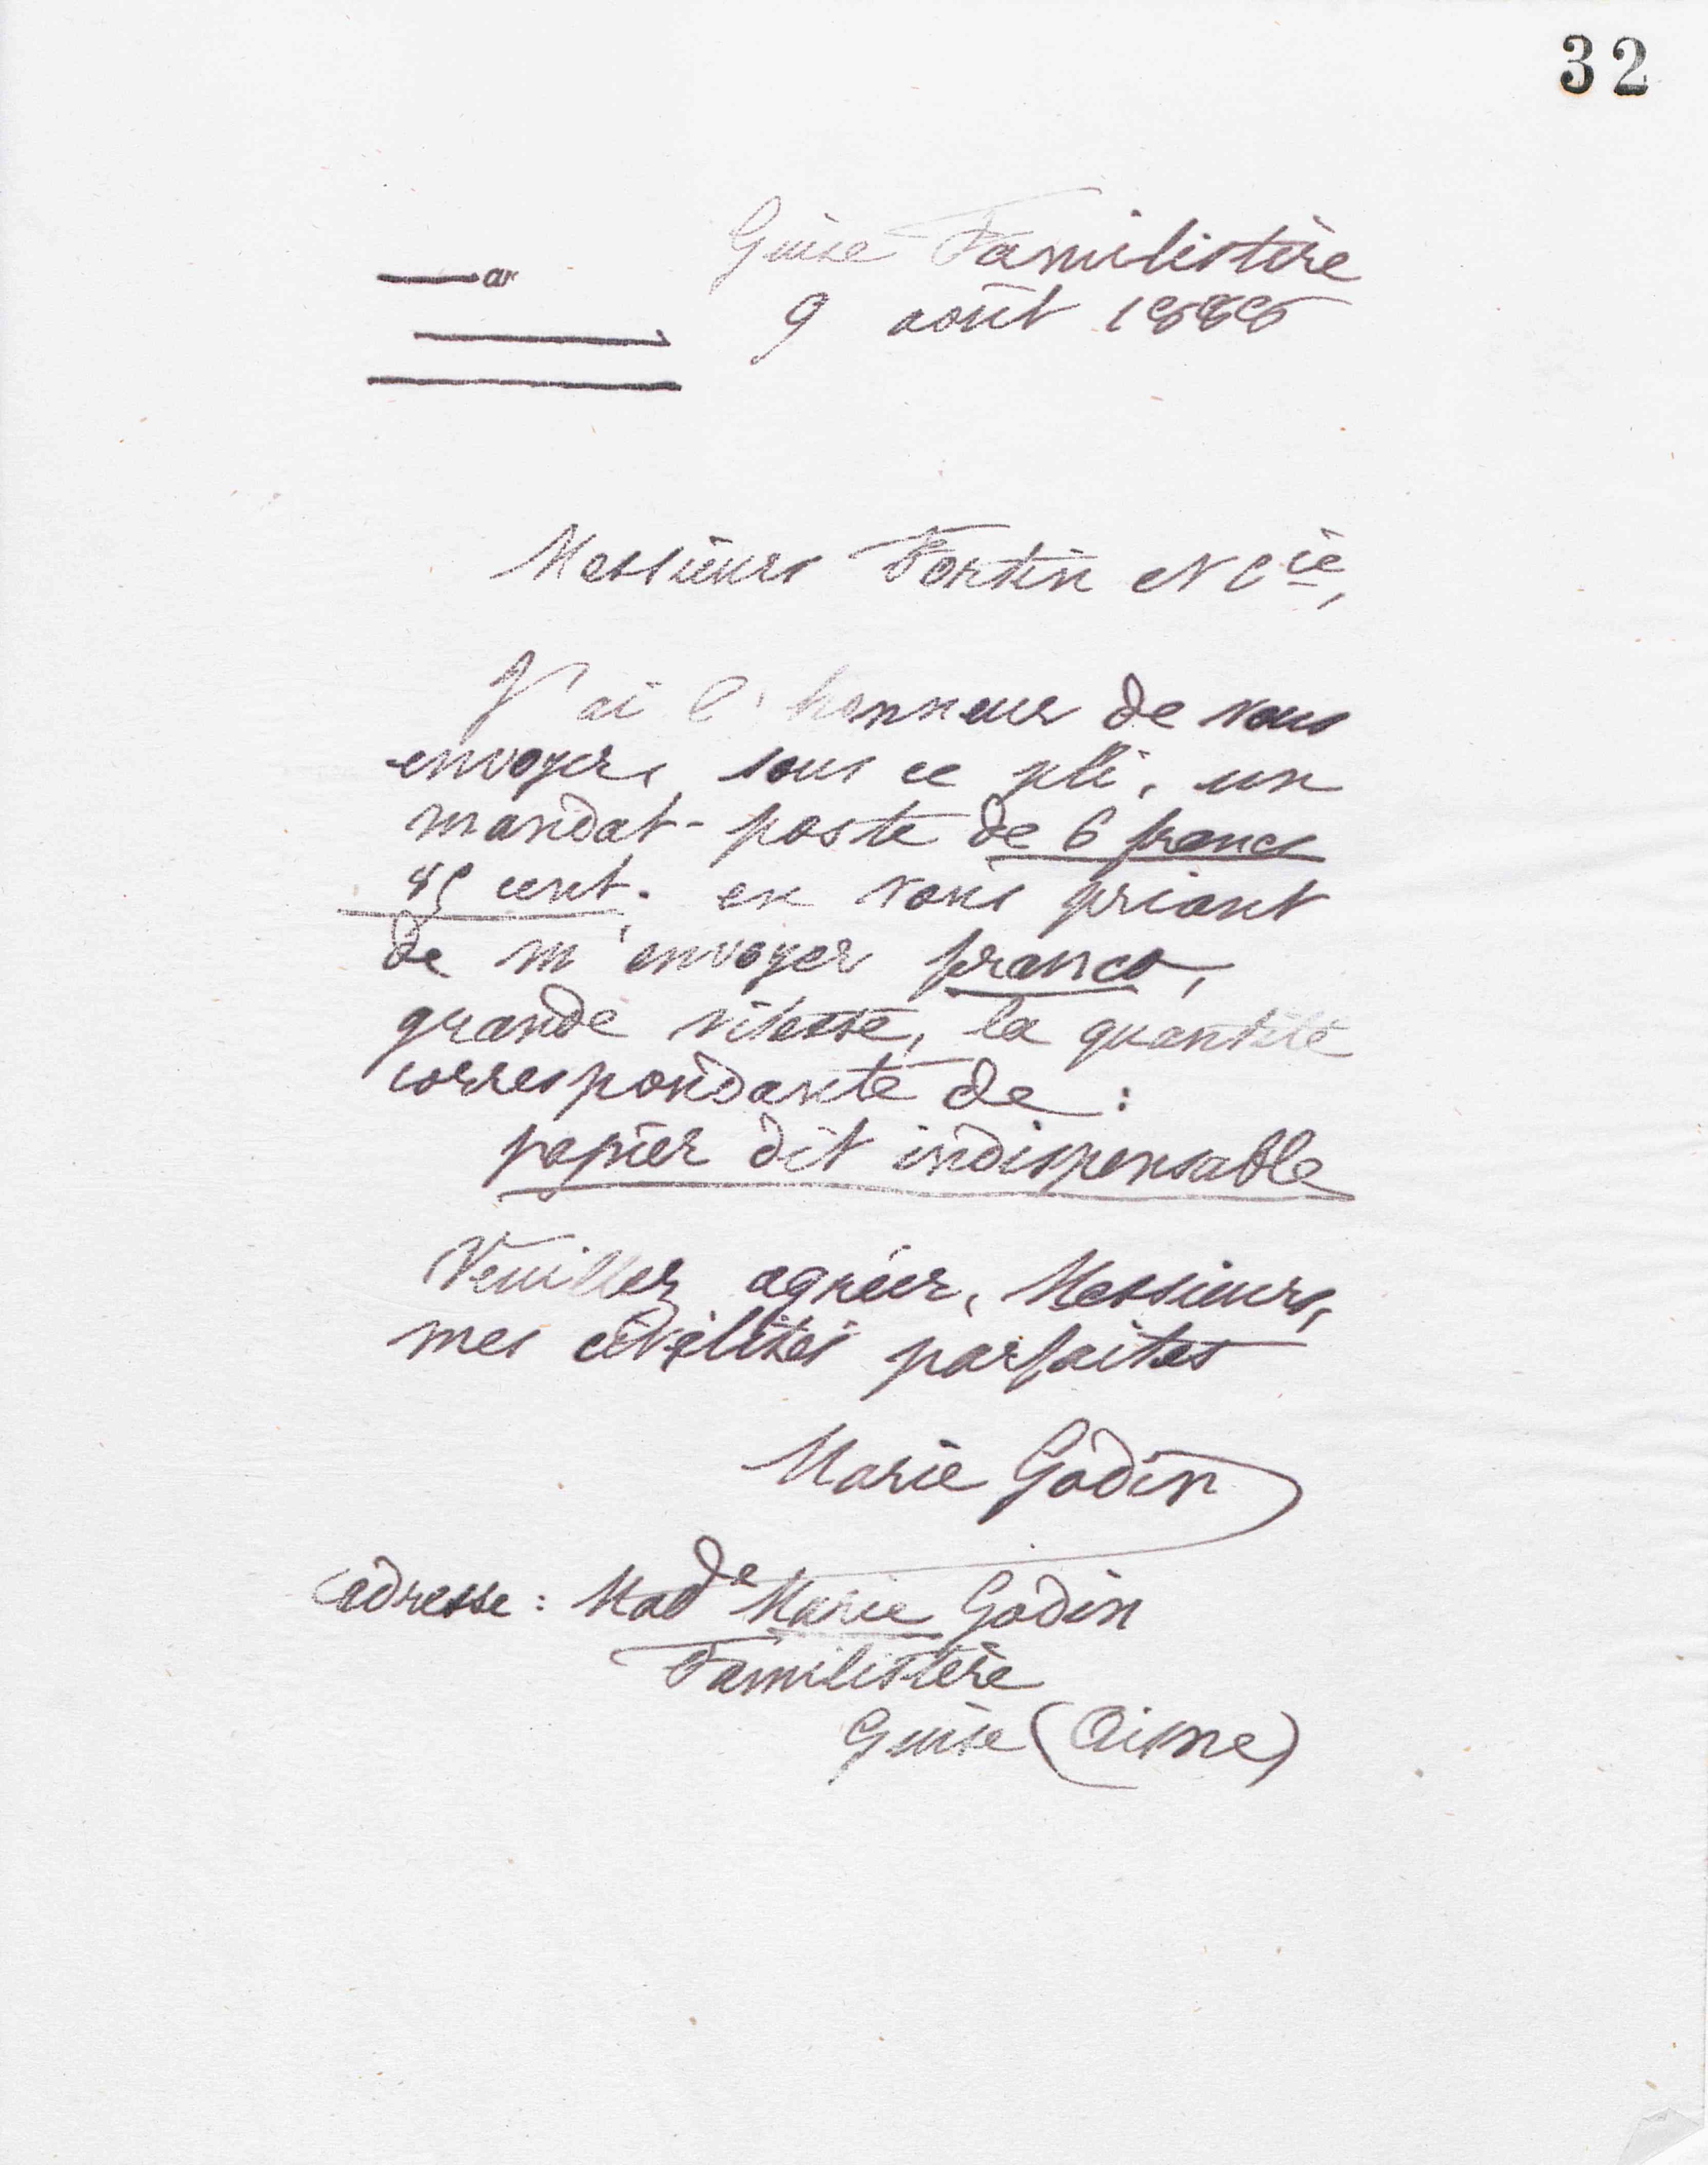 32
Guise Familistère
9 août 1888
Messieurs Fortin et Cie,
J'ai l'honneur de vous
envoyer, sous ce pli, un
mandat-poste de 6 francs
85 cent. en vous priant
de m'envoyer franco,
grande vitesse, la quantité
correspondante de :
papier dit indispensable
Veuillez agréer, Messieurs,
mes civilités parfaites
Marie Godin
adresse : Madde Marie Godin
Familistère
Guise (Aisne)